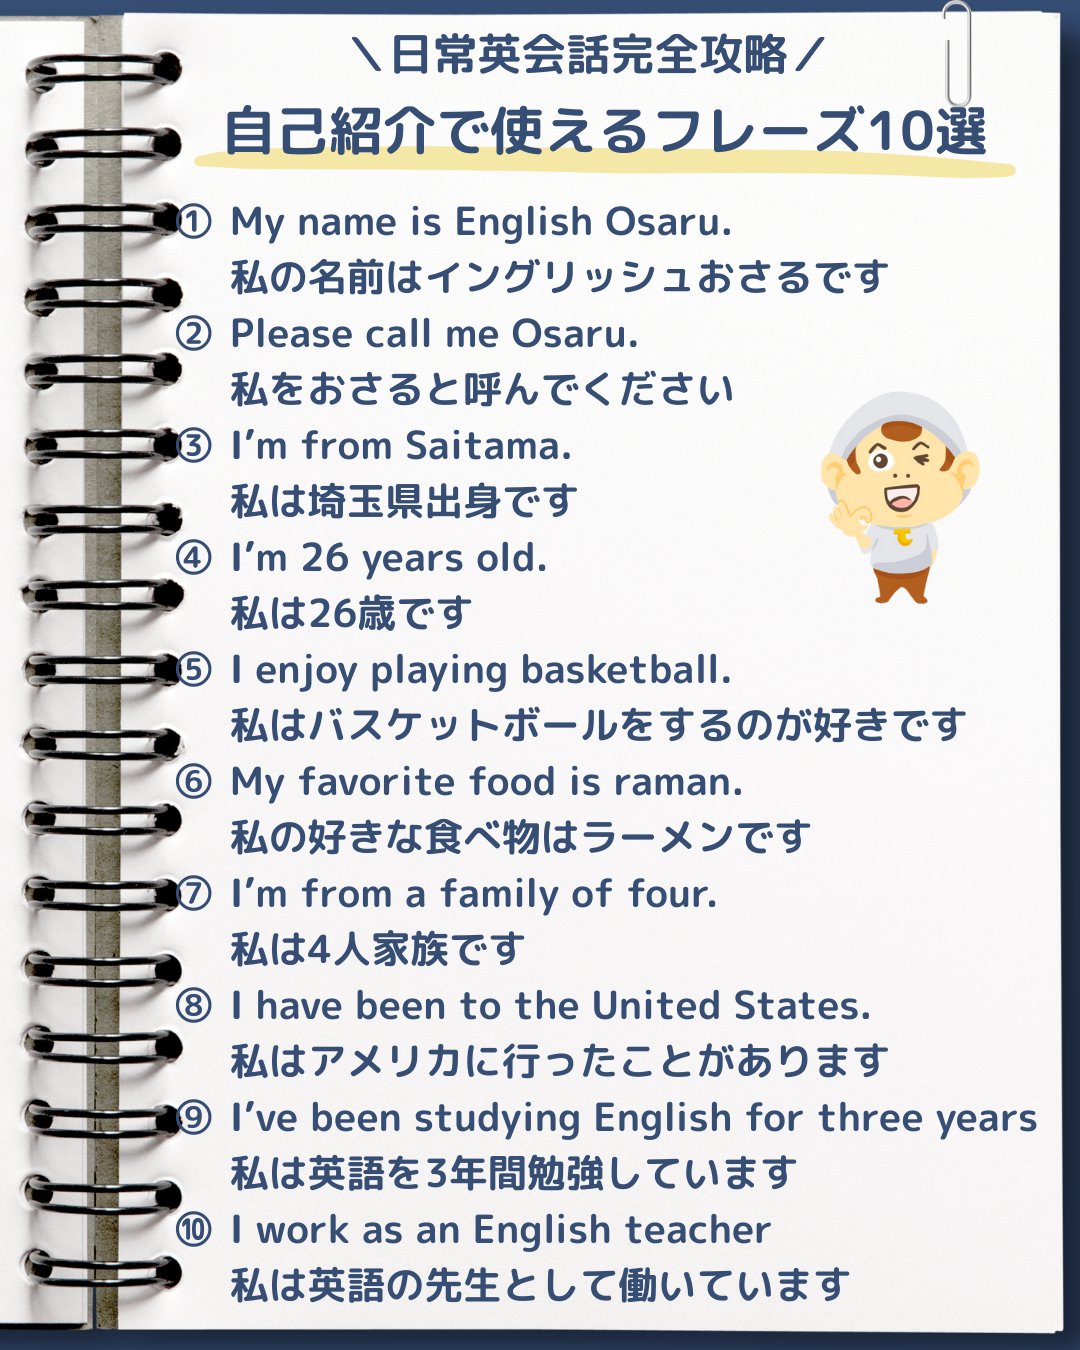 ＼日常英会話完全攻略／
自己紹介で使えるフレーズ10選
① My name is English Osaru.
私の名前はイングリッシュおさるです
② Please call me Osaru.
私をおさると呼んでください
③ I’m from Saitama.
私は埼玉県出身です
④ I’m 26 years old.
私は26歳です
⑤ I enjoy playing basketball.
私はバスケットボールをするのが好きです
⑥ My favorite food is raman.
私の好きな食べ物はラーメンです
⑦ I’m from a family of four.
私は4人家族です
⑧ I have been to the United States.
私はアメリカに行ったことがあります
⑨ I’ve been studying English for three years
私は英語を3年間勉強しています
⑩ I work as an English teacher
私は英語の先生として働いています